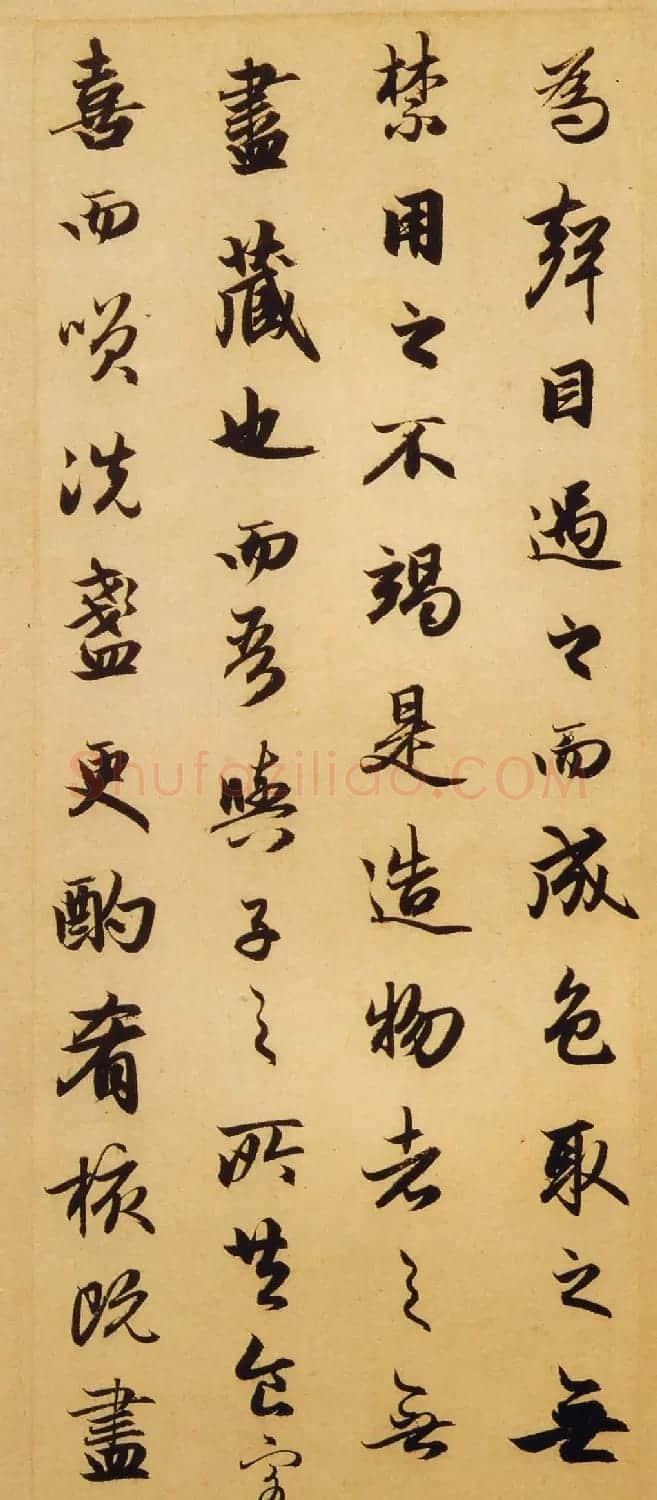 為聲目遇之而成色取之無
禁用之不竭是造物者之無
盡藏也而吾與子之所共食客
喜而笑洗盞更酌肴核既盡
shufaziliao.COM